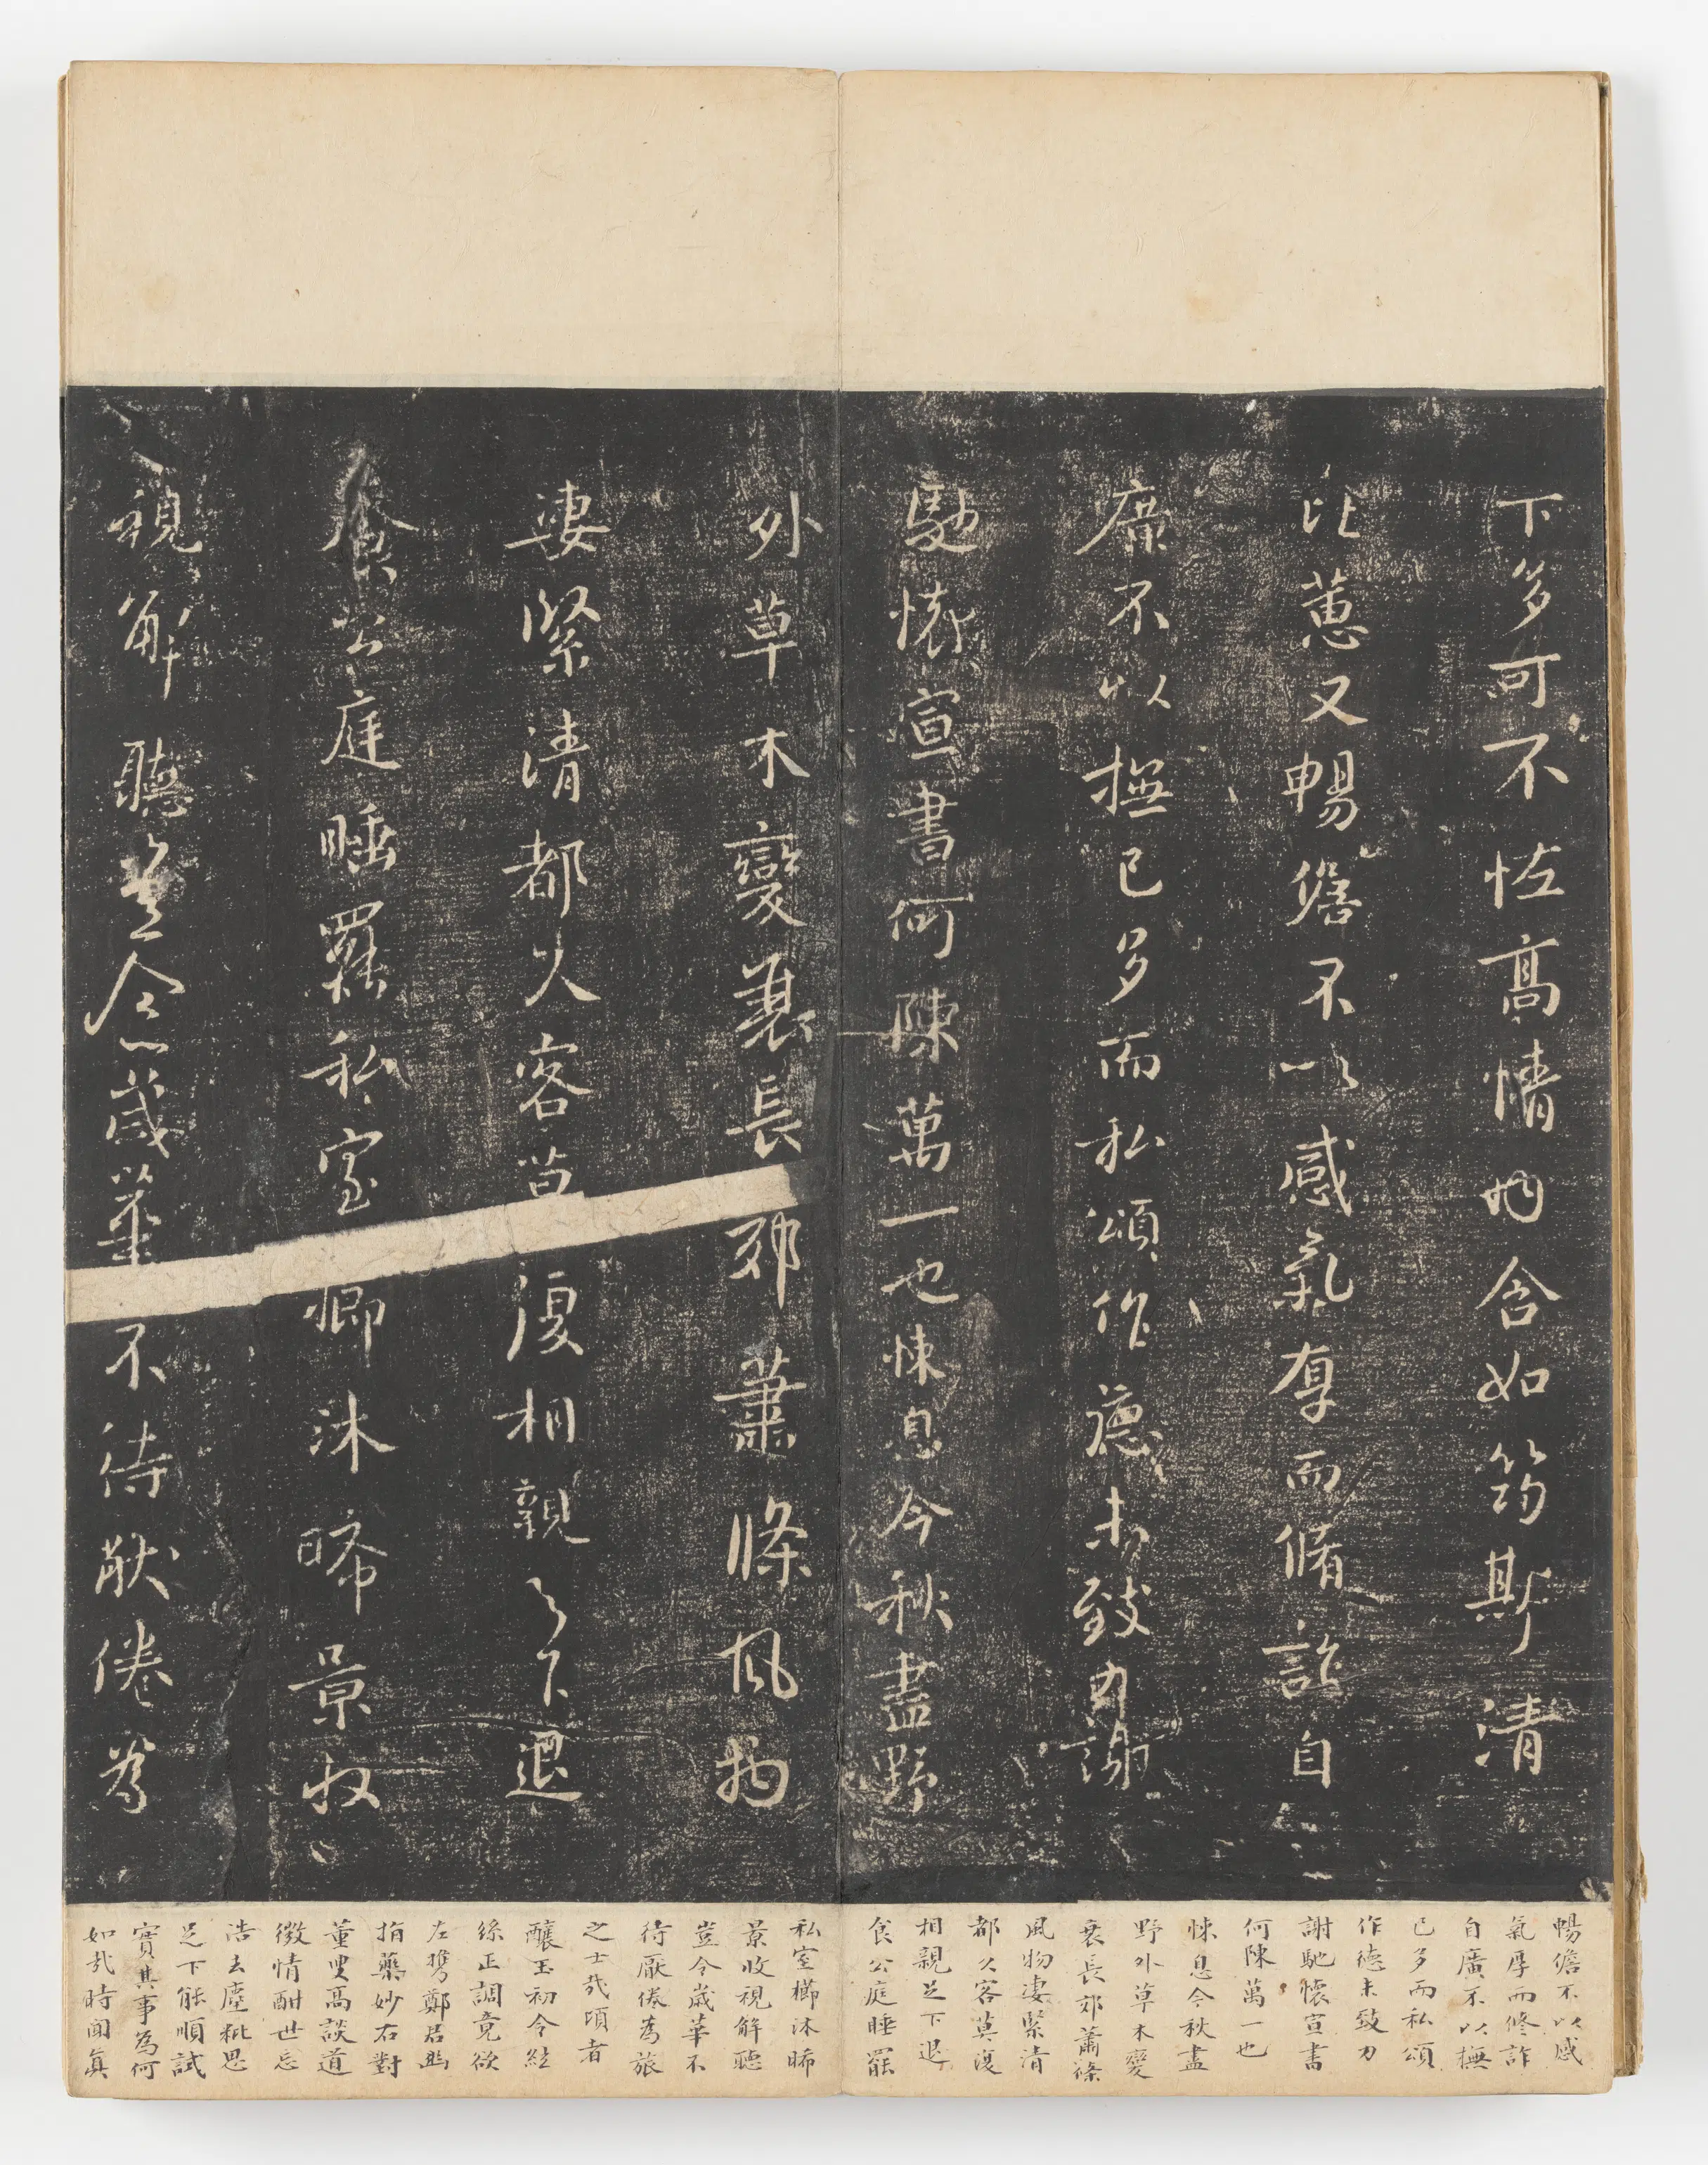 下多可不恠高情内含如筠斯清
比蕙又暢儋不以感氣厚而脩詐自
廣不以撫已多而私頌作德未致力謝
馳懷宣書何陳萬一也悚息今秋盡野
外草木變衰長郊蕭條風物
凄緊清都久客莫復相親足下退
食公庭睡罷私室櫛沐晞景收
視解聽豈今歲華不待厭倦為
暢儋不以感
氣厚而修詐
自廣不以撫
已多而私頌
作德未致力
謝馳懷宣書
何陳萬一也
悚息今秋盡
野外草木變
衰長郊蕭條
風物凄緊清
都久客莫復
相親足下退
食公庭睡罷
私室櫛沐晞
景收視解聽
豈今歲華不
待厭倦為旅
之士哉頃者
釀玉初令絃
絲正調竟欲
左攜鄭君
指藥妙右對
董叟高談道
微情酣世忘
浩去塵粃思
足下能順試
實其事為何
如哉時聞真